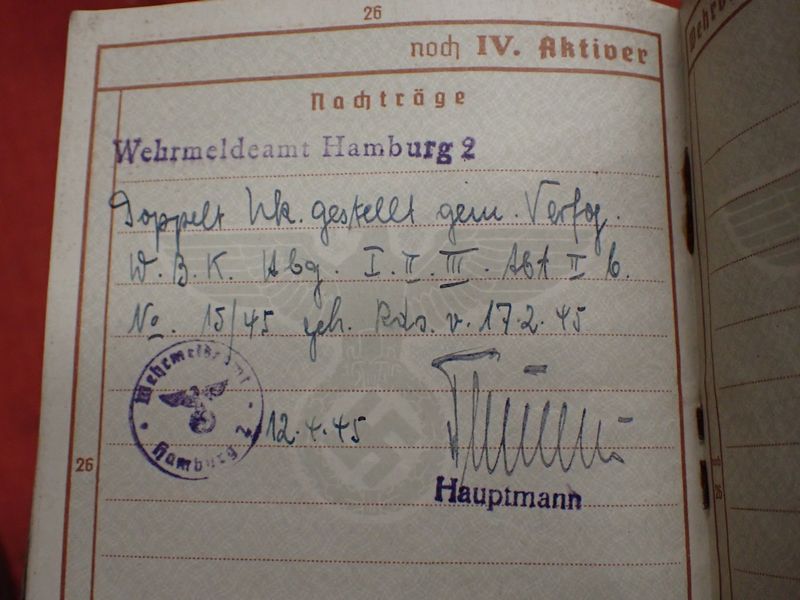 26
noch IV. Aktiver
Nachträge
Wehrmeldeamt Hamburg 2
Doppelt Uk. gestellt gem. Verfg.
W. B. K. Hbg. I. II. III. Abt II b.
No. 15/45 geh. Rds. v. 17.2.45
Wehrmeldeamt Hamburg 2
12.4.45
Hauptmann
26
26